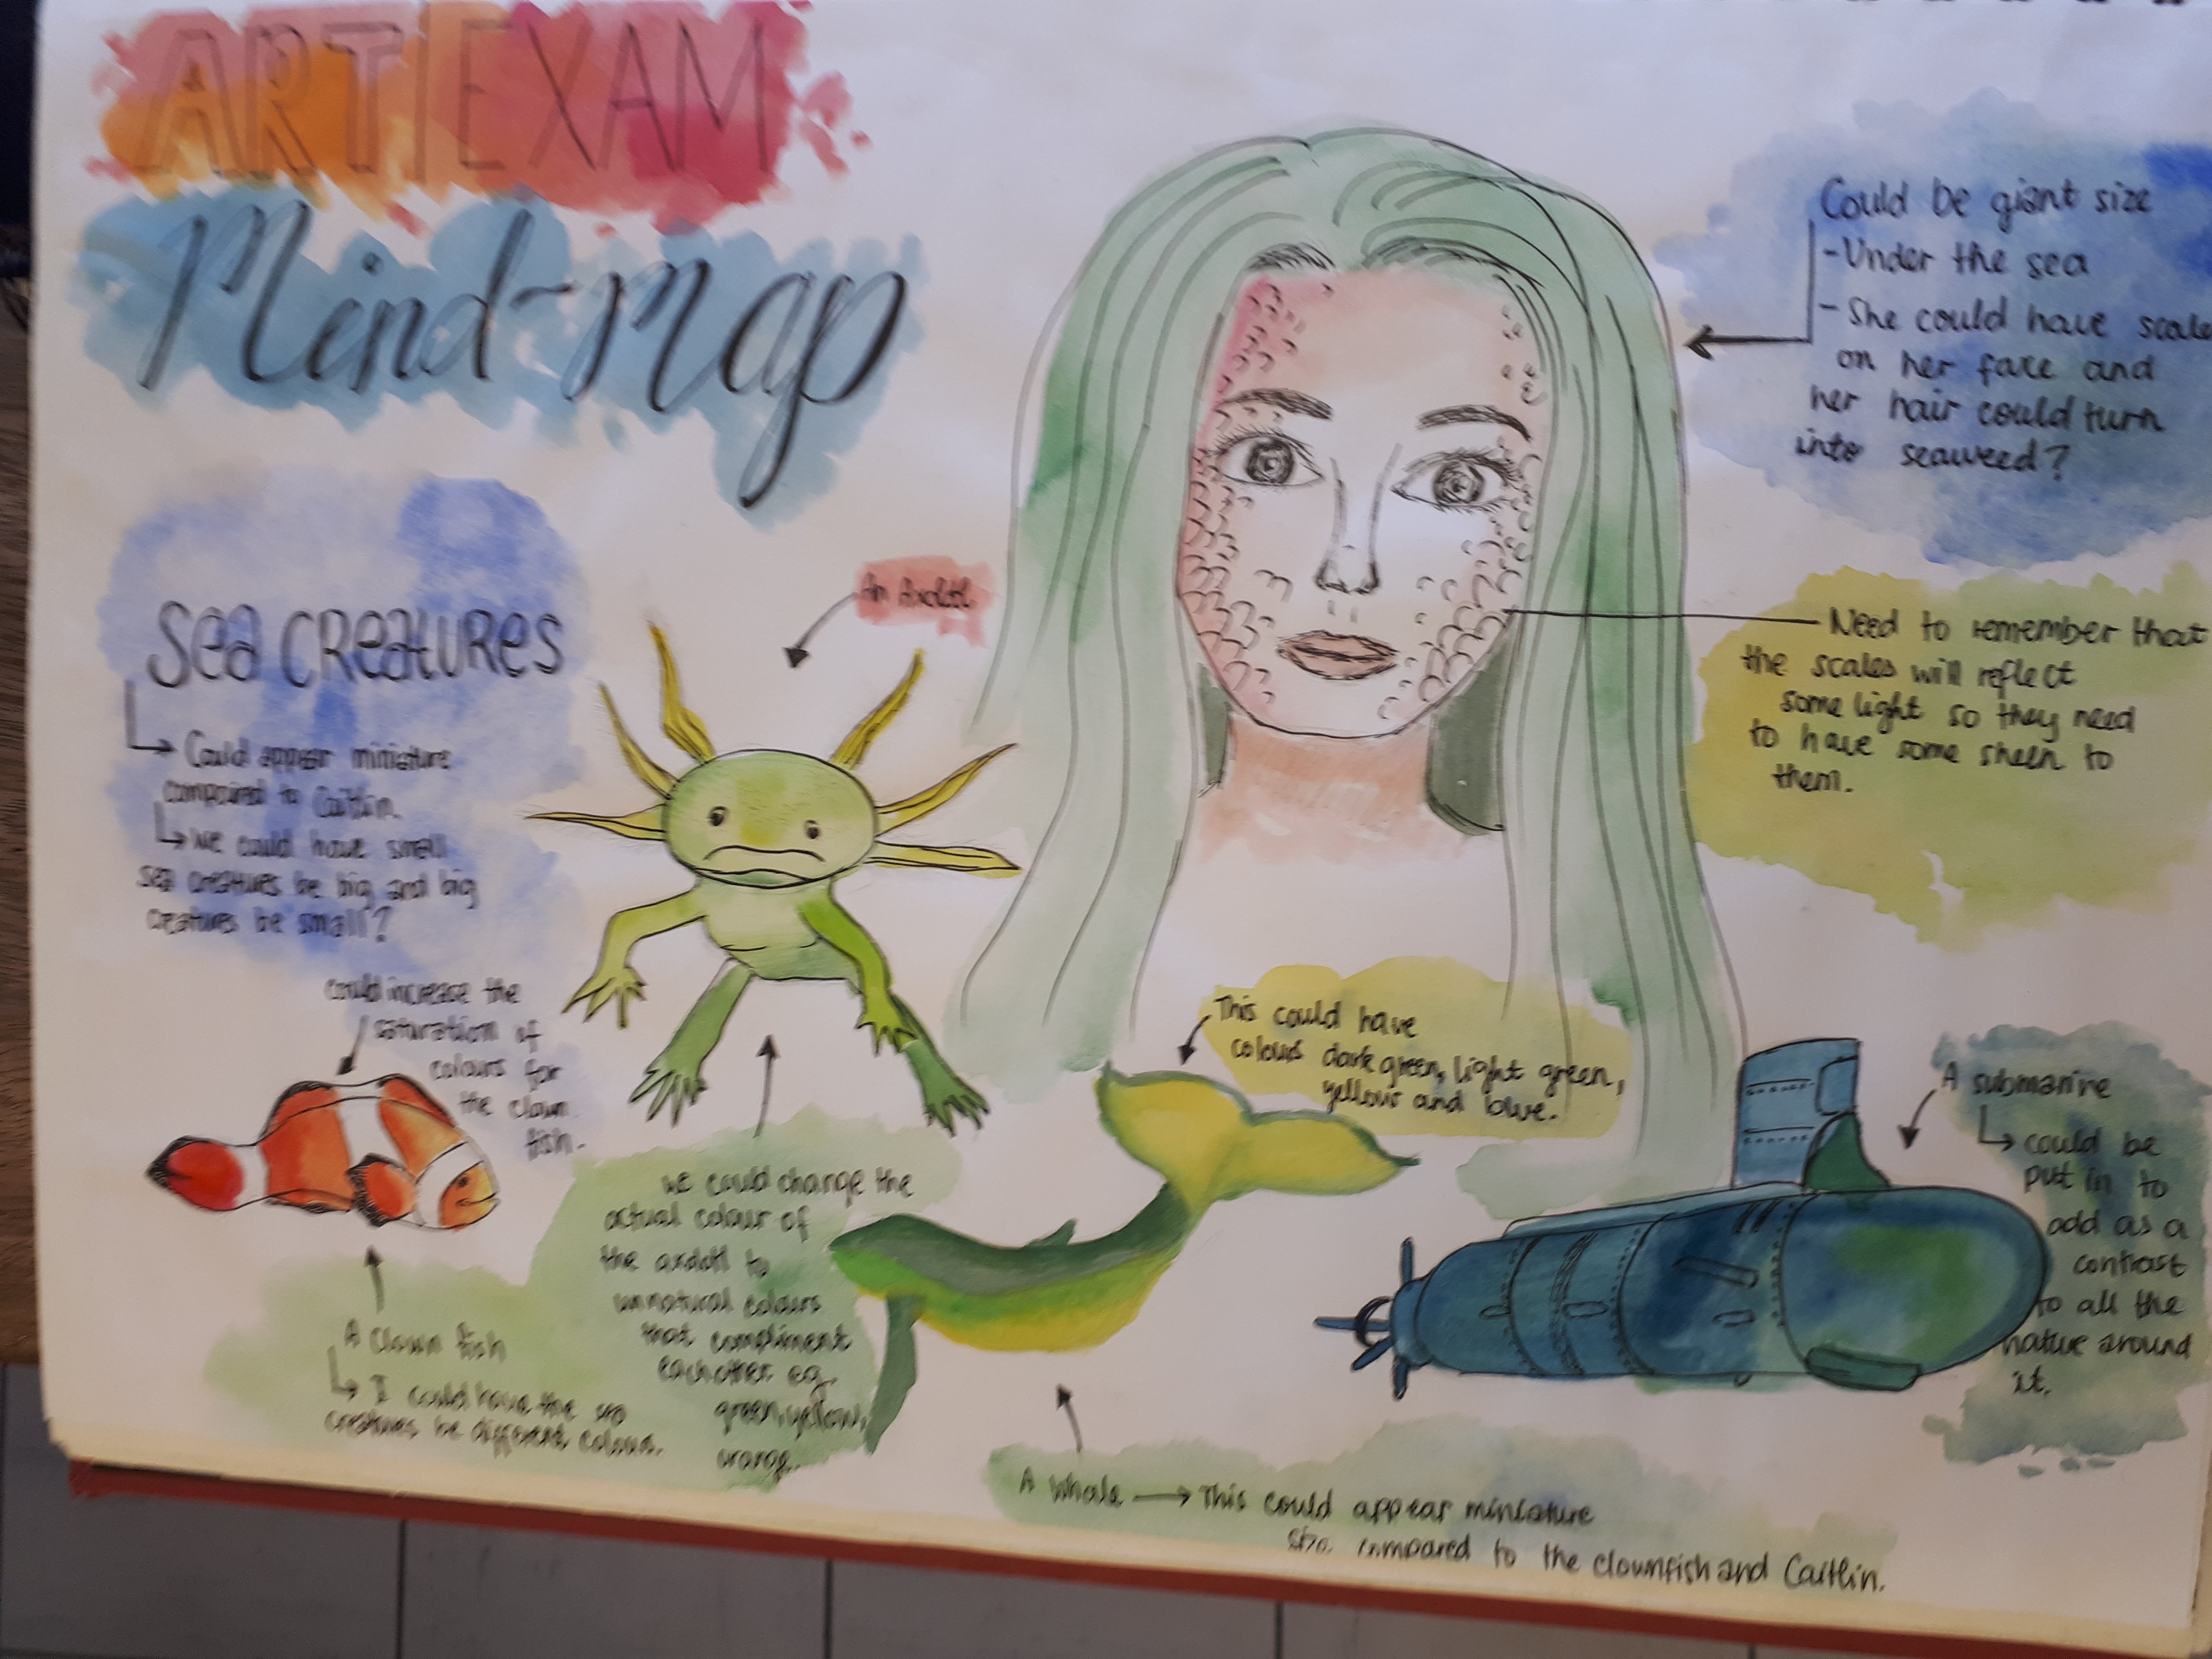 ART/EXAM
Mind-Map
Could be giant size
-Under the sea
- She could have scale
on her face and
her hair could turn
into seaweed?
An Axolotl
Sea CReatURes
Need to remember that
the scales will reflect
some light so they need
to have some sheen to
them.
Could appear miniature
compared to Caitlin.
we could have small
sea creatures be big and big
creatures be small?
could increase the
saturation of
colours for
the clown
fish.
This could have
colours dark green, light green,
yellows and blue.
A submarine
could be
put in to
add as a
contrast
to all the
nature around
it.
we could change the
actual colour of
the axolotl to
unnatural colours
that compliment
eachother eg.
green, yellow,
orange.
A clown fish
I could have the sea
creatures be different colour.
A whale → This could appear miniature
size compared to the clownfish and Caitlin.